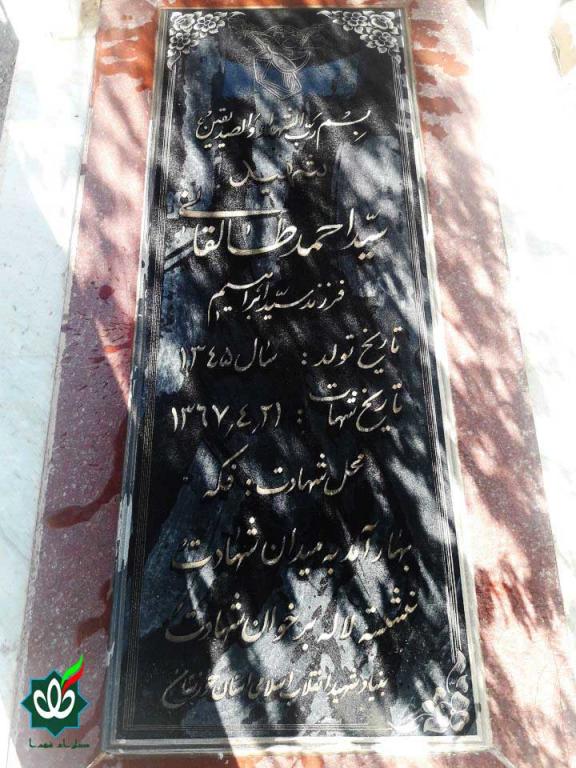 بسم رب الشهداء والصدیقین
شهید
سیّد احمد طالقانی
فرزند سیّد ابراهیم
تاریخ تولد : سال ۱۳۴۵
تاریخ شهادت : ۱۳۶۷,۴,۲۱
محل شهادت : فکه
بهار آمد به میدان شهادت
نشسته لاله بر خوان شهادت
بنیاد شهید انقلاب اسلامی استان خوزستان